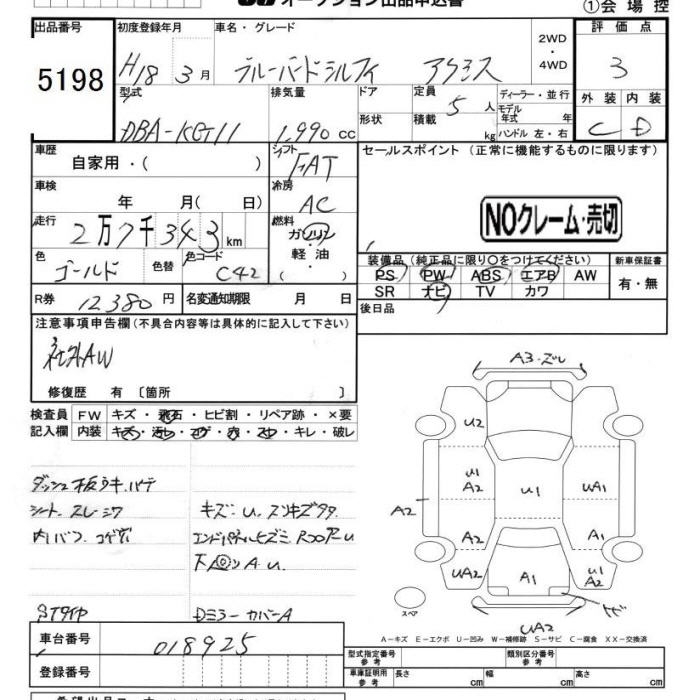 オークション出品申込書
①会場控
出品番号 初度登録年月 車名・グレード 2WD ・ 4WD 評価点
5198 H18 3月 ブルーバードシルフィ アクシス 3
型式 排気量 ドア 定員 5人 ディーラー・並行 外装 内装
モデル年式 年式
DBA-KG11 1,990cc 形状 積載 kg ハンドル 左・右 C D
車歴 自家用・( ) シフト FAT セールスポイント (正常に機能するものに限ります)
車検 年 月( 日) 冷房 AC
NOクレーム・売切
走行 2万7千343km 燃料 ガソリン・軽油・( )
色 ゴールド 色替 色コード C42
装備品 (純正品に限り○をつけてください) 新車保証書
PS PW ABS エアB AW 有・無
SR ナビ TV カワ
R券 12380円 名変通知期限 月 日 後日品
注意事項申告欄(不具合内容等は具体的に記入して下さい)
社外AW
修復歴 有〔箇所 〕
A3・ズレ
検査員 FW キズ・飛石・ヒビ割・リペア跡・×要
記入欄 内装 キズ・汚レ・コゲ・穴・スレ・キレ・破レ
U2
U1 A2 U1 UA1
A2
A1
UA2 A1 U1 A2
UA2
スペア
ダッシュ板ウキ.
シート.スレ.シワ キズ.u.スリキズタタ
内バフ.コゲ穴
Dミラーカバー A
A―キズ E―エクボ U―凹み W―補修跡 S―サビ C―腐食 XX―交換済
車台番号 018925
型式指定番号 参考 類別区分番号 参考
登録番号 車庫証明用 参考 長さ cm 幅 cm 高さ cm